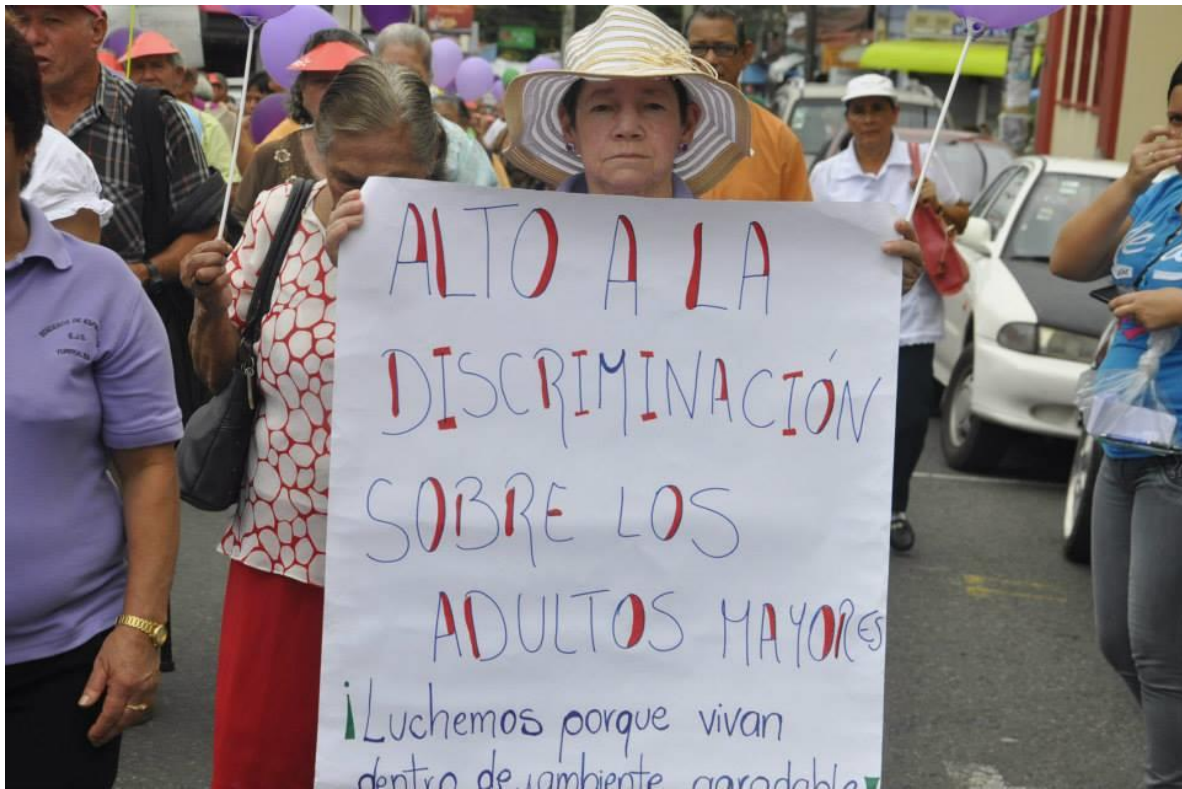 ALTO A LA
DISCRIMINACIÓN
SOBRE LOS
ADULTOS MAYORES
¡Luchemos porque vivan
dentro de ambiente agradable!